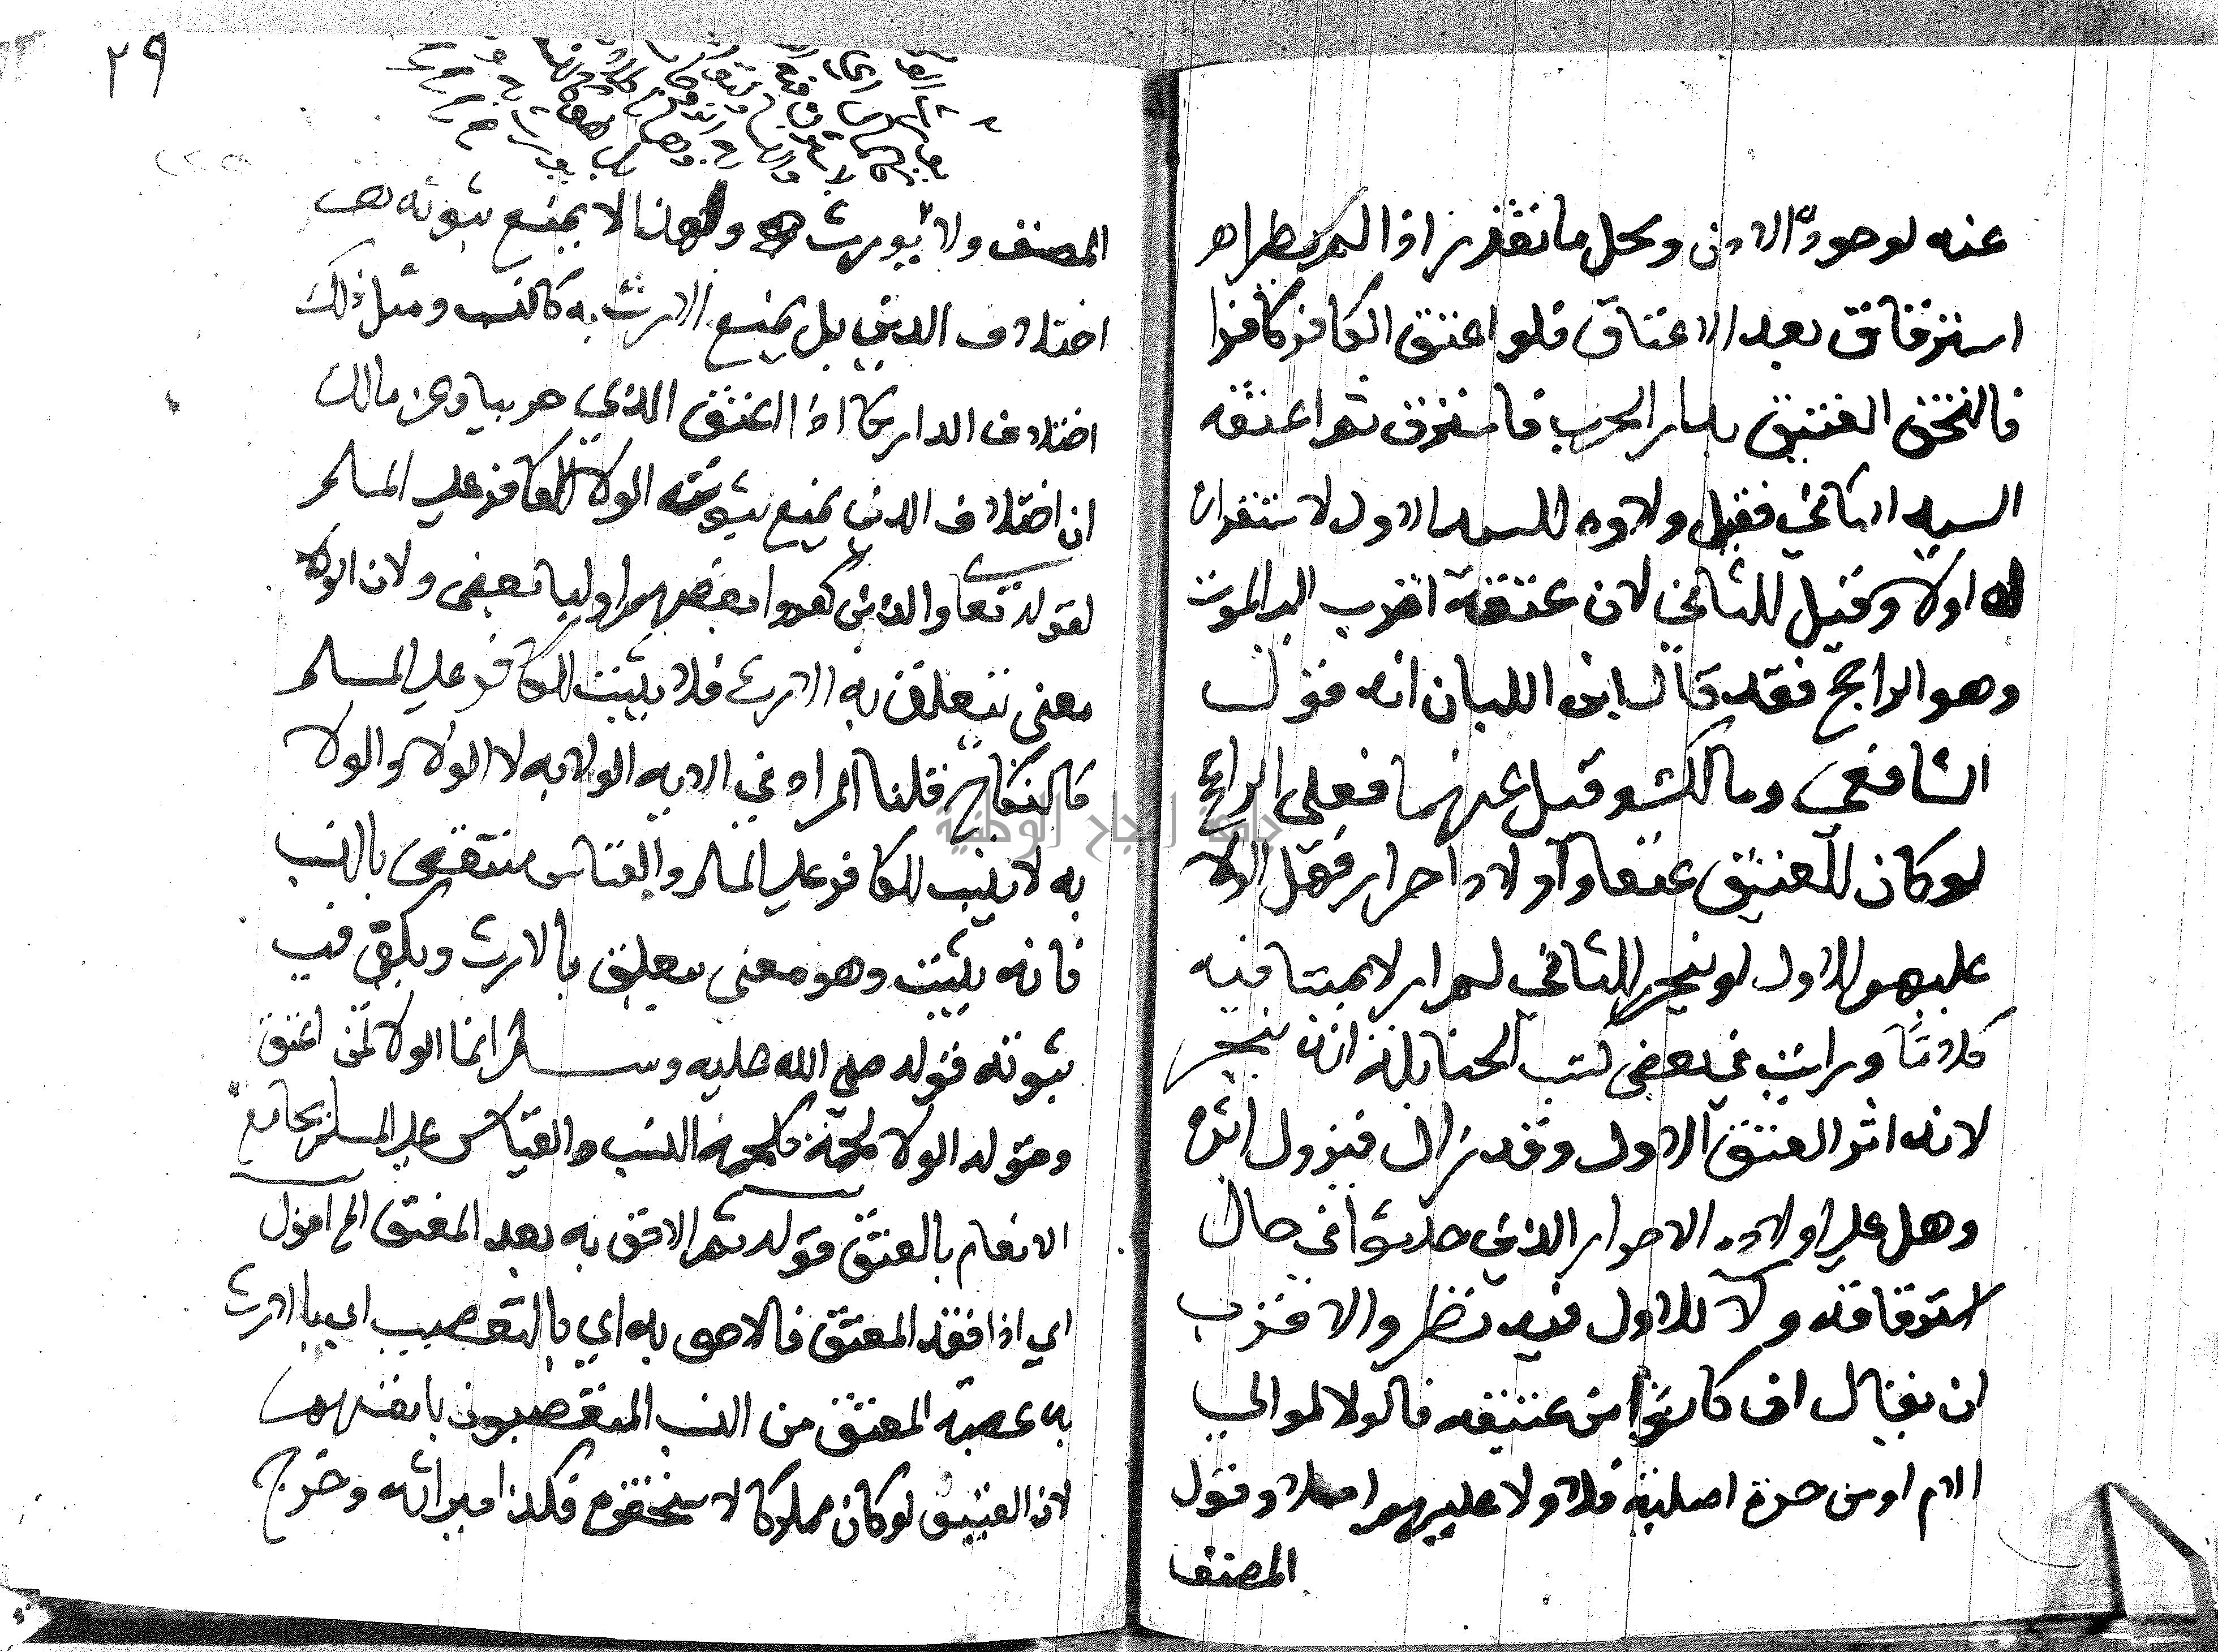 عنه لوجود الاذن ومحل ما تقرر اذا لم يطرا هر
استرقاق بعد الاعتاق فلو اعتق الكافر كافرا
فالتحق العتيق بدار الحرب فاسترق ثم اعتقه
السيد الثاني فقيل ولاوه للسيد الاول لاستقراره
له اولا وقيل للثاني لان عتقه اقرب الي الموت
وهو الراجح فقد قال ابن اللبان انه قول
الشافعي ومالك وقيل عنهما فعلي الراجح
لو كان للعتيق عتقا واولاد احرار فهل الولا
عليهم للاول او ينجر للثاني لم ار لايمتنا فيه
كلاما ورايت في بعض كتب الحنابلة انه ينجر
لانه اثر العتق الاول وقد زال فيزول اثره
وهل علي اولاده الاحرار الذين حدثوا في حال
استرقاقه ولا للاول فيه نظر والاقرب
ان يقال ان كانوا من عتيقه فالولا لموالي
الام او من حرة اصلية فلا ولا عليهم اصلا وقول
المصنف
٢٩
المصنف ولا يورث به ولهذا لا يمنع ثبوته
اختلاف الدين بل يمنع الارث به كالنسب ومثل ذلك
اختلاف الدار كما اذا اعتق الذمي حربيا وعن مالك
ان اختلاف الدين يمنع ثبوته الولا للكافر علي المسلم
لقوله تعا والذين كفروا بعضهم اوليا بعض ولان الولا
معني يتعلق به الارث فلا يثبت للكافر علي المسلم
كالنكاح قلنا المراد في الايه الولايه لا الولا والولا
به لا يثبت للكافر علي المسلم والقياس منتقض بالنسب
فانه يثبت وهو معني يتعلق بالارث ويكفي في
ثبوته قوله صلي الله عليه وسلم انما الولا لمن اعتق
وقوله الولا لحمة كلحمة النسب والقياس علي المسلم بجامع
الانعام بالعتق قوله ثم الاحق به بعد المعتق الخ اقول
اي اذا فقد المعتق فالاحق به اي بالتعصيب اي بالارث
به عصبة المعتق من النسب المتعصبون بانفسهم
لان العتيق لو كان مملوكا لاستحقوه فكذا ميراثه وخرج